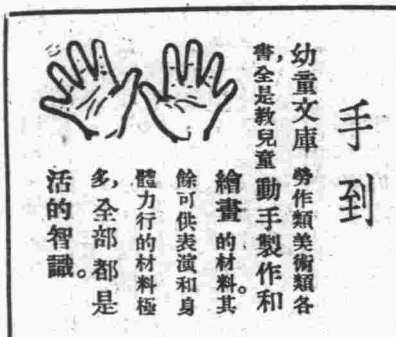 手到
幼童文庫 勞作類美術類各
書,全是教兒童 動手製作和
繪畫 的材料。其
餘可供表演和身
體力行的材料極
多,全部都是
活的智識。